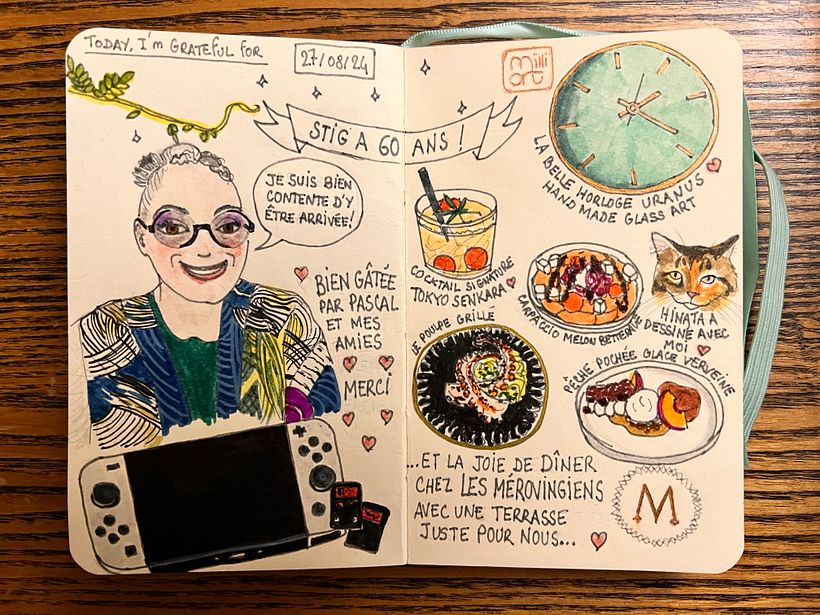 TODAY, I'M GRATEFUL FOR
27/08/24
STIG A 60 ANS !
JE SUIS BIEN
CONTENTE D'Y
ÊTRE ARRIVÉE!
BIEN GÂTÉE
PAR PASCAL
ET MES
AMIES
MERCI
LA BELLE HORLOGE URANUS
HAND MADE GLASS ART
COCKTAIL SIGNATURE
TOKYO SENKARA
CARPACCIO MELON BETTERAVE
HINATA A
DESSINÉ AVEC
MOI
LE POULPE GRILLÉ
PÊCHE POCHÉE GLACE VERVEINE
...ET LA JOIE DE DÎNER
CHEZ LES MÉROVINGIENS
AVEC UNE TERRASSE
JUSTE POUR NOUS...
M